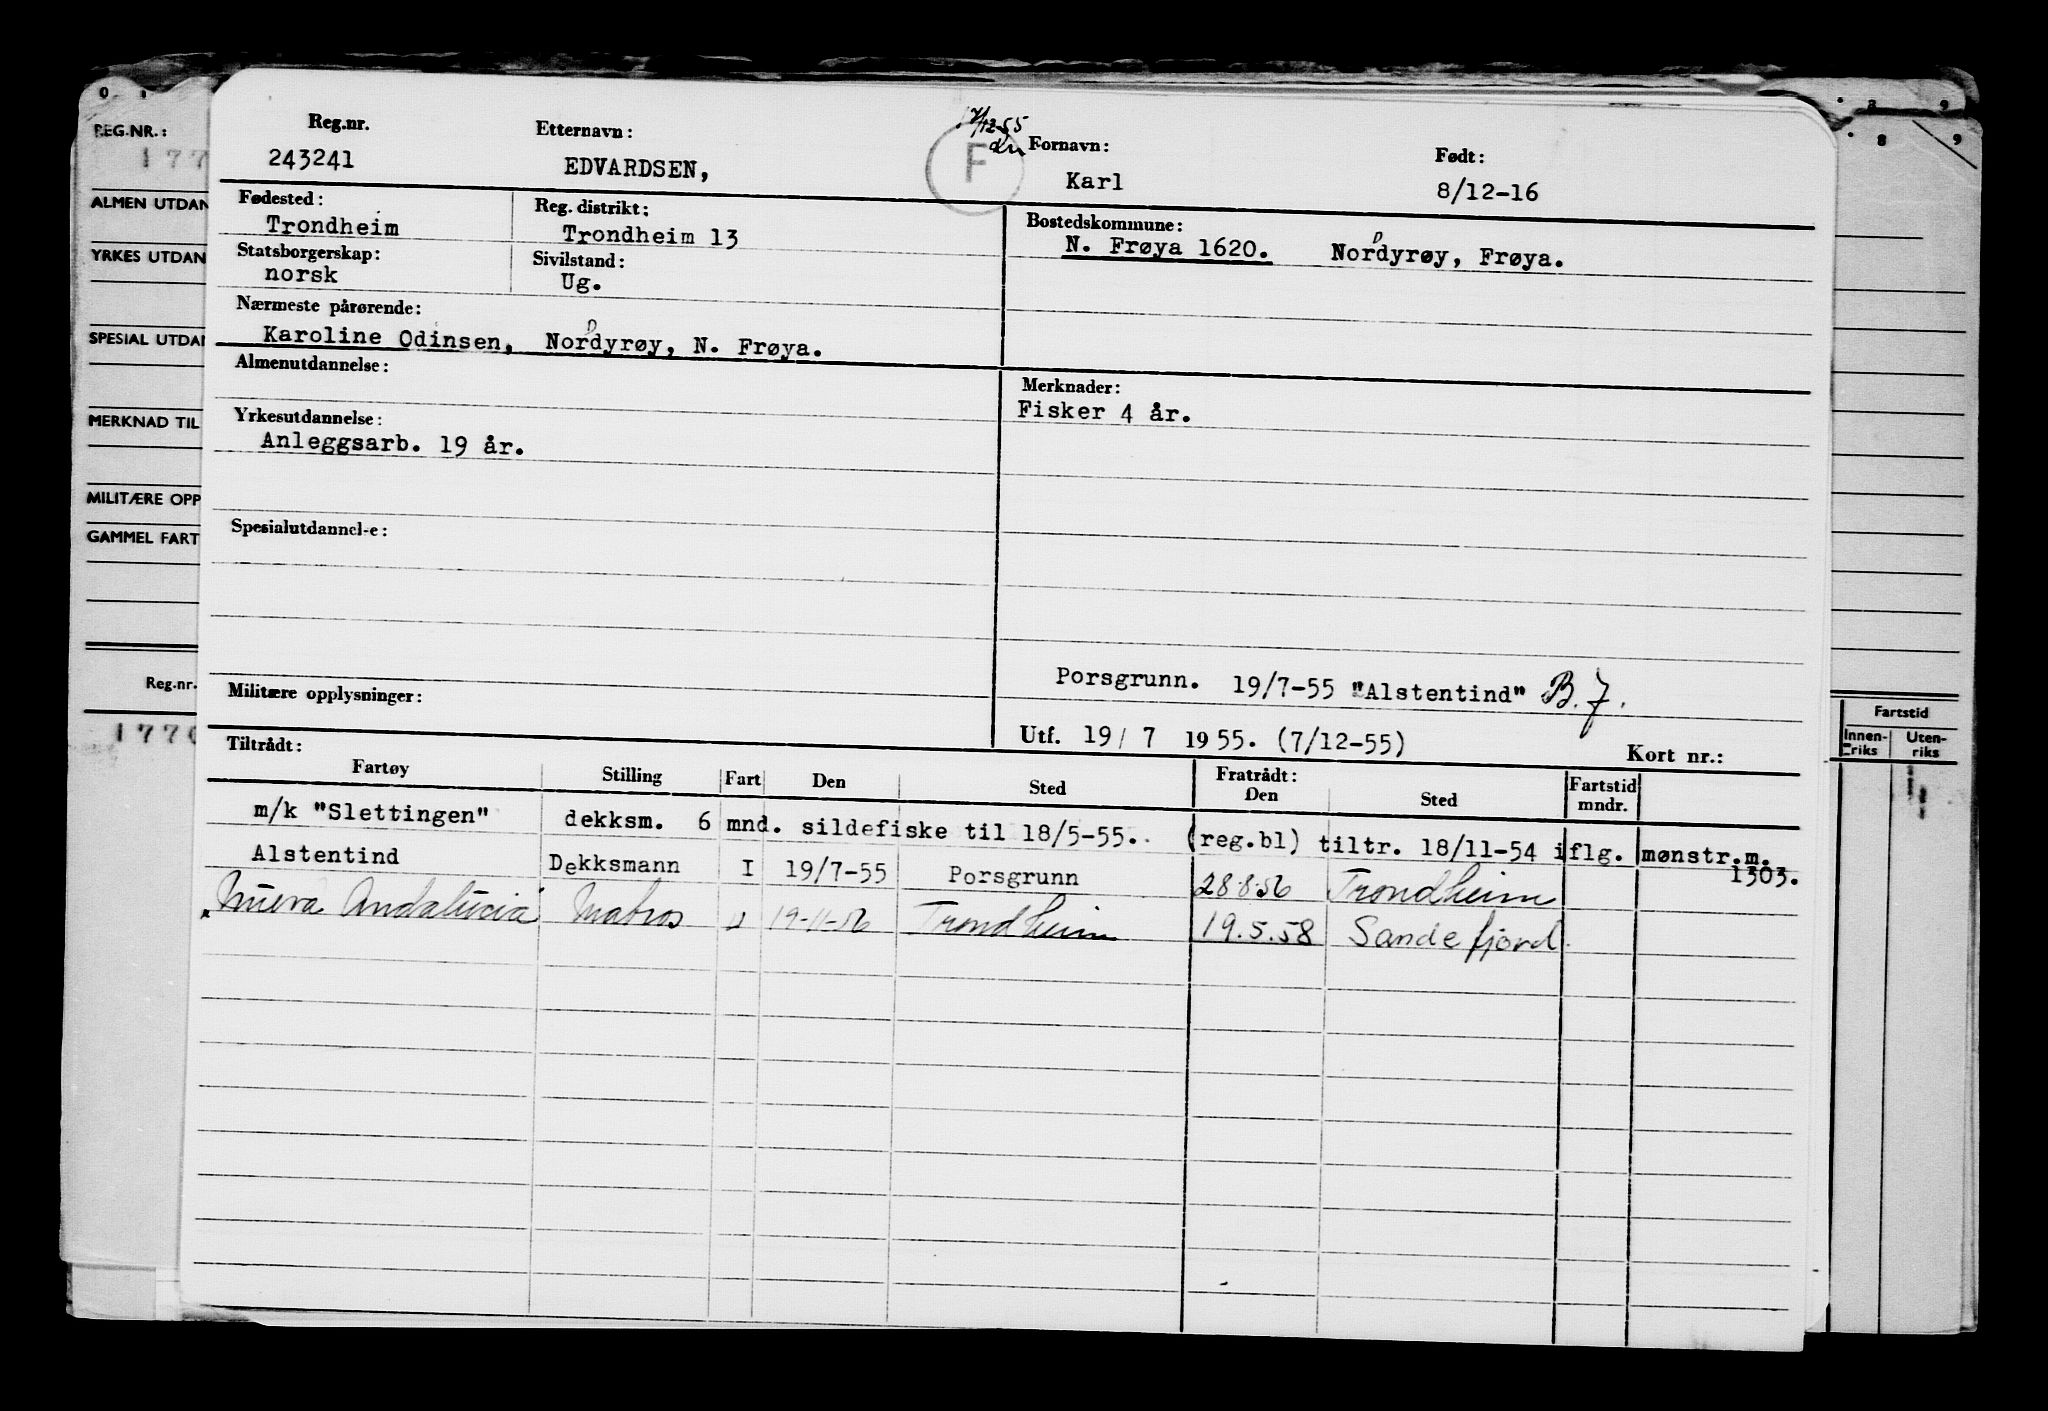 Reg.nr. Etternavn: Fornavn: Født:
243241 EDVARDSEN, F Karl 8/12-16
Fødested: Reg. distrikt: Bostedskommune:
Trondheim Trondheim 13 N. Frøya 1620. Nordyrøy, Frøya.
Statsborgerskap: Sivilstand:
norsk Ug.
Nærmeste pårørende:
Karoline Odinsen, Nordyrøy, N. Frøya.
Almenutdannelse: Merknader:
Fisker 4 år.
Yrkesutdannelse:
Anleggsarb. 19 år.
Spesialutdannel-e:
Porsgrunn. 19/7-55 "Alstentind" B.7.
Militære opplysninger:
Utf. 19/7 1955. (7/12-55) Kort nr.:
Tiltrådt: Fratrådt:
Fartøy Stilling Fart Den Sted Den Sted Fartstid mndr.
m/k "Slettingen" dekksm. 6 mnd. sildefiske til 18/5-55. (reg.bl) tiltr. 18/11-54 iflg. mønstr.m. 1303.
Alstentind Dekksmann I 19/7-55 Porsgrunn 28.8.56 Trondheim
Nueva Andalucia Matros U 19-11-56 Trondheim 19.5.58 Sandefjord.
REG.NR.:
177
ALMEN UTDAN
YRKES UTDAN
SPESIAL UTDAN
MERKNAD TIL
MILITÆRE OPP
GAMMEL FART
Reg.nr.
1770
8 9
8 9
Fartstid
Innen-riks Uten-riks